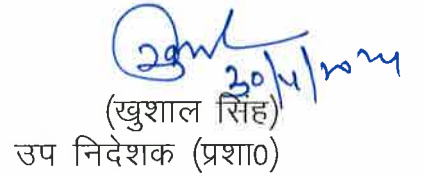 खुशाल
30/4/2024
(खुशाल सिंह)
उप निदेशक (प्रशा0)